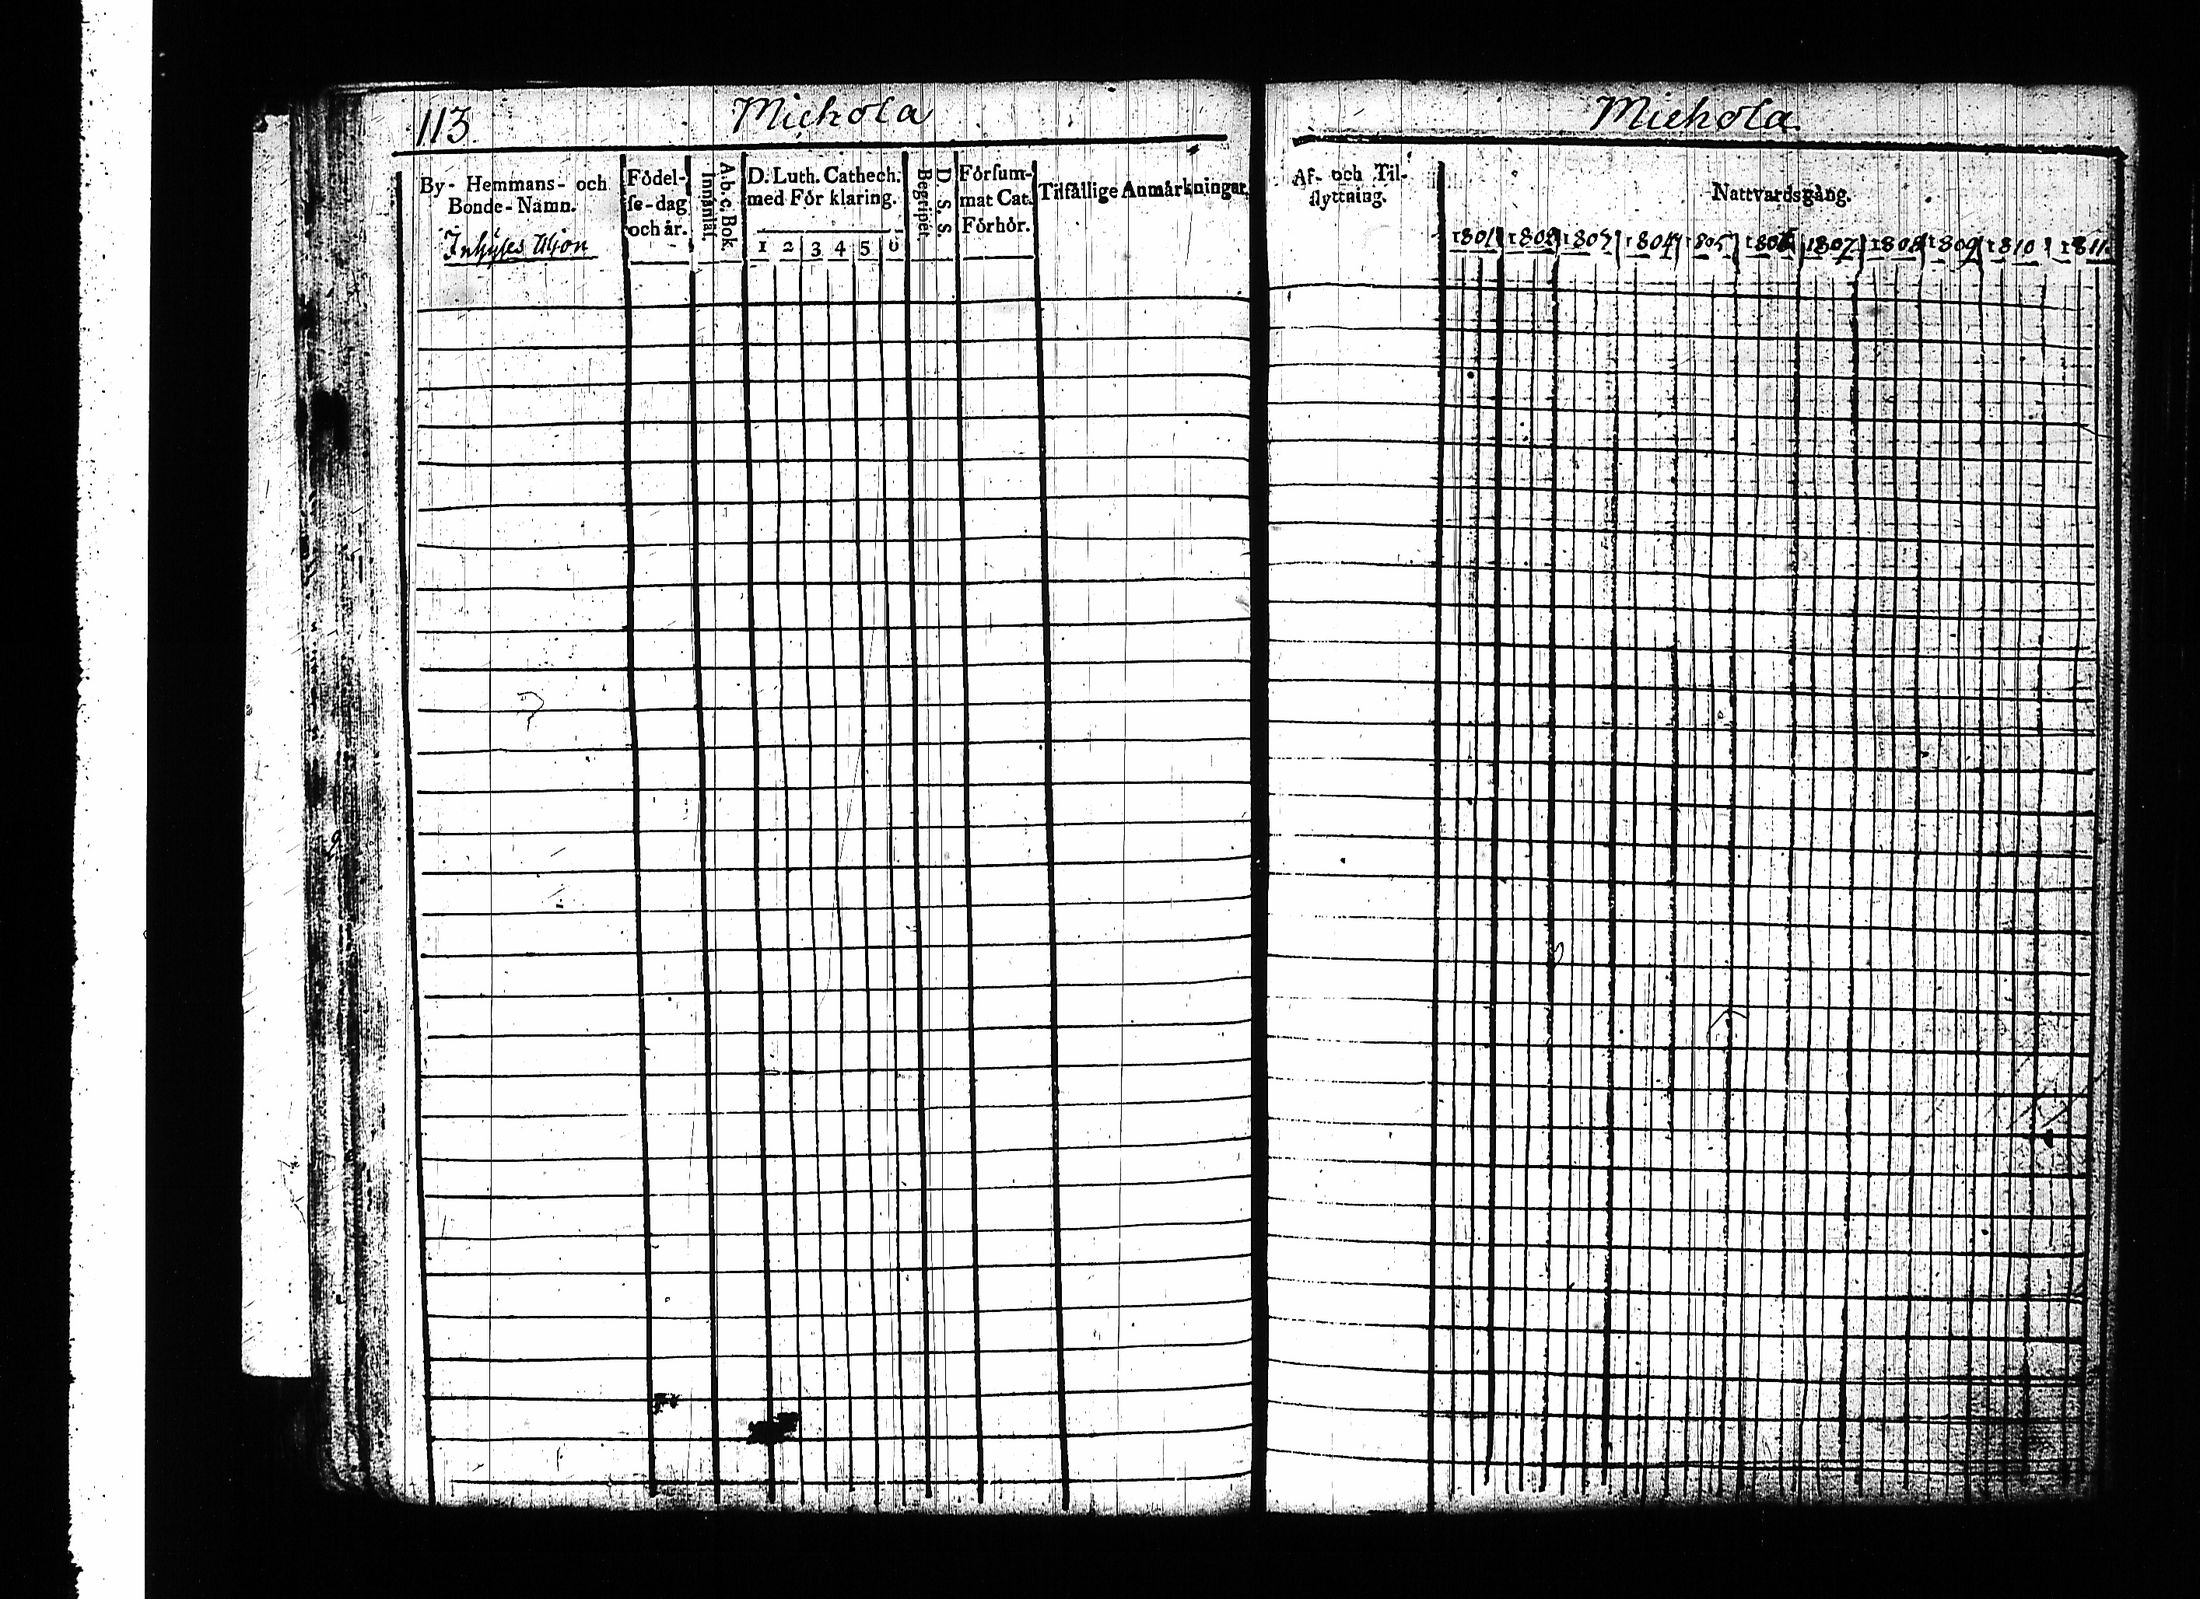 113.
Miehola
By- Hemmans- och
Bonde-Namn.
Inhyses
Födel-
se-dag
och år.
A.b.c. Bok.
Innanläs.
D. Luth. Cathech.
med För klaring.
1 2 3 4 5 6
D. S. S.
Begripet.
Försum-
mat Cat.
Förhör.
Tilfällige Anmärkningar.
Miehola.
Af- och Til-
flyttning.
Nattvardsgång.
1801 1802 1803 1804 1805 1806 1807 1808 1809 1810 1811.